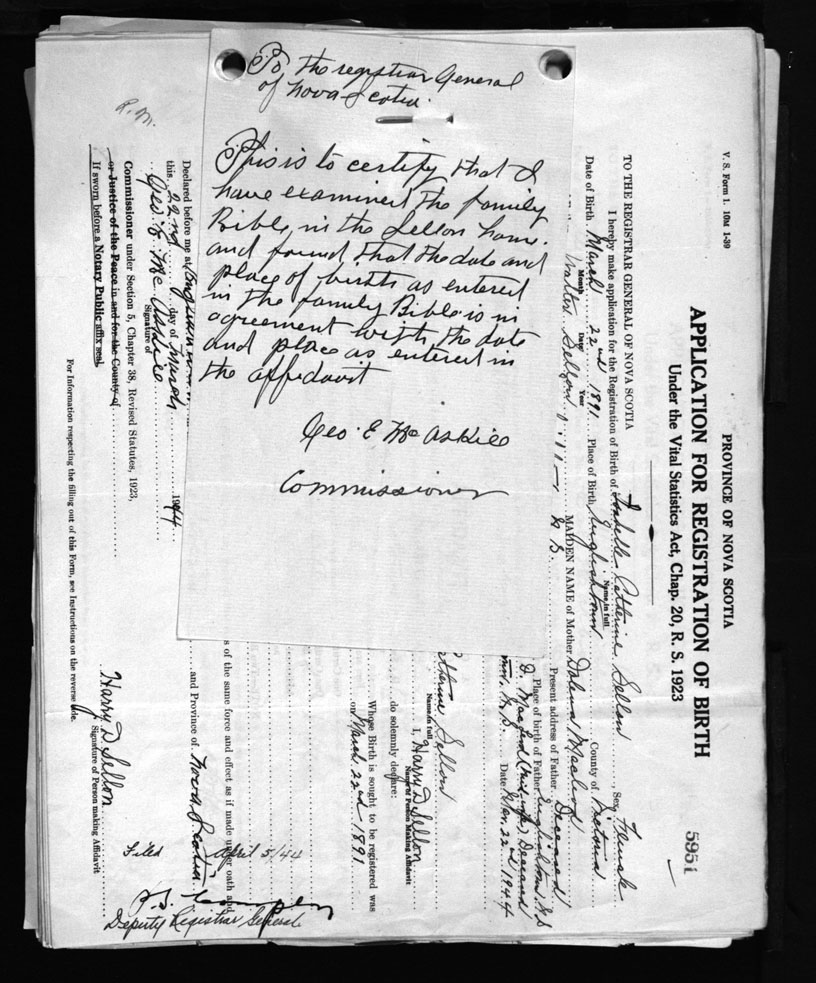 To the registrar General
of Nova Scotia.
This is to certify that I
have examined the family
Bible, in the Sellon home.
and found that the date and
place of birth as entered
in the family Bible is in
agreement with the date
and place as entered in
the affidavit
Geo. E McAskill
Commissioner
R.M.
V. S. Form 1. 10M 1-39
PROVINCE OF NOVA SCOTIA
APPLICATION FOR REGISTRATION OF BIRTH
Under the Vital Statistics Act, Chap. 20, R. S. 1923
5951
TO THE REGISTRAR GENERAL OF NOVA SCOTIA
I hereby make application for the Registration of Birth of Isabelle Catherine Sellon, Sex Female
Name in full
Date of Birth March 22nd 1891 Place of Birth Englishtown County of Victoria
Month Day Year
Sellon MAIDEN NAME of Mother
N.S. Present address of Father Deceased
Place of birth of Father Englishtown, N.S
Deceased
N.S. Date Mar. 22nd 1944
Catherine Sellon
Name in full
I, Harry D Sellon
Name of Person Making Affidavit
do solemnly declare:
Whose Birth is sought to be registered was
on March 22nd 1891
and Province of Nova Scotia
s of the same force and effect as if made under oath and
Declared before me at
this 22nd day of March 1944
Geo. E McAskill
Signature of
Commissioner under Section 5, Chapter 38, Revised Statutes, 1923,
or Justice of the Peace in and for the County of
If sworn before a Notary Public affix seal
Harry D Sellon
Signature of Person making Affidavit
For Information respecting the filling out of this Form, see Instructions on the reverse side.
Filed April 5/44
Deputy Registrar General